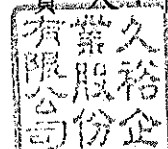 久裕企
業股份
有限公司